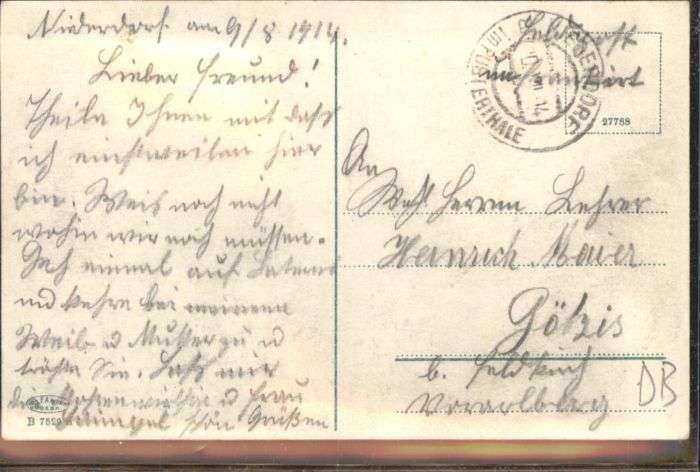 Niederdorf am 9/8 1914.
Lieber Freund!
Theile Ihnen mit daß
ich einstweilen hier
bin. Weis noch nicht
wohin wir noch müssen.
Geh einmal auf Laterns
und kehre bei meinem
Weib u Mutter zu u
tröste Sie. Laß mir
die u Frau
schön Grüßen
B 7529
Feldpost
unfrankiert
IM PUSTERTHALE
27788
An
Wohl Herren Lehrer
Heinrich Maier
Götzis
b. Feldkirch
Vorarlberg
DB